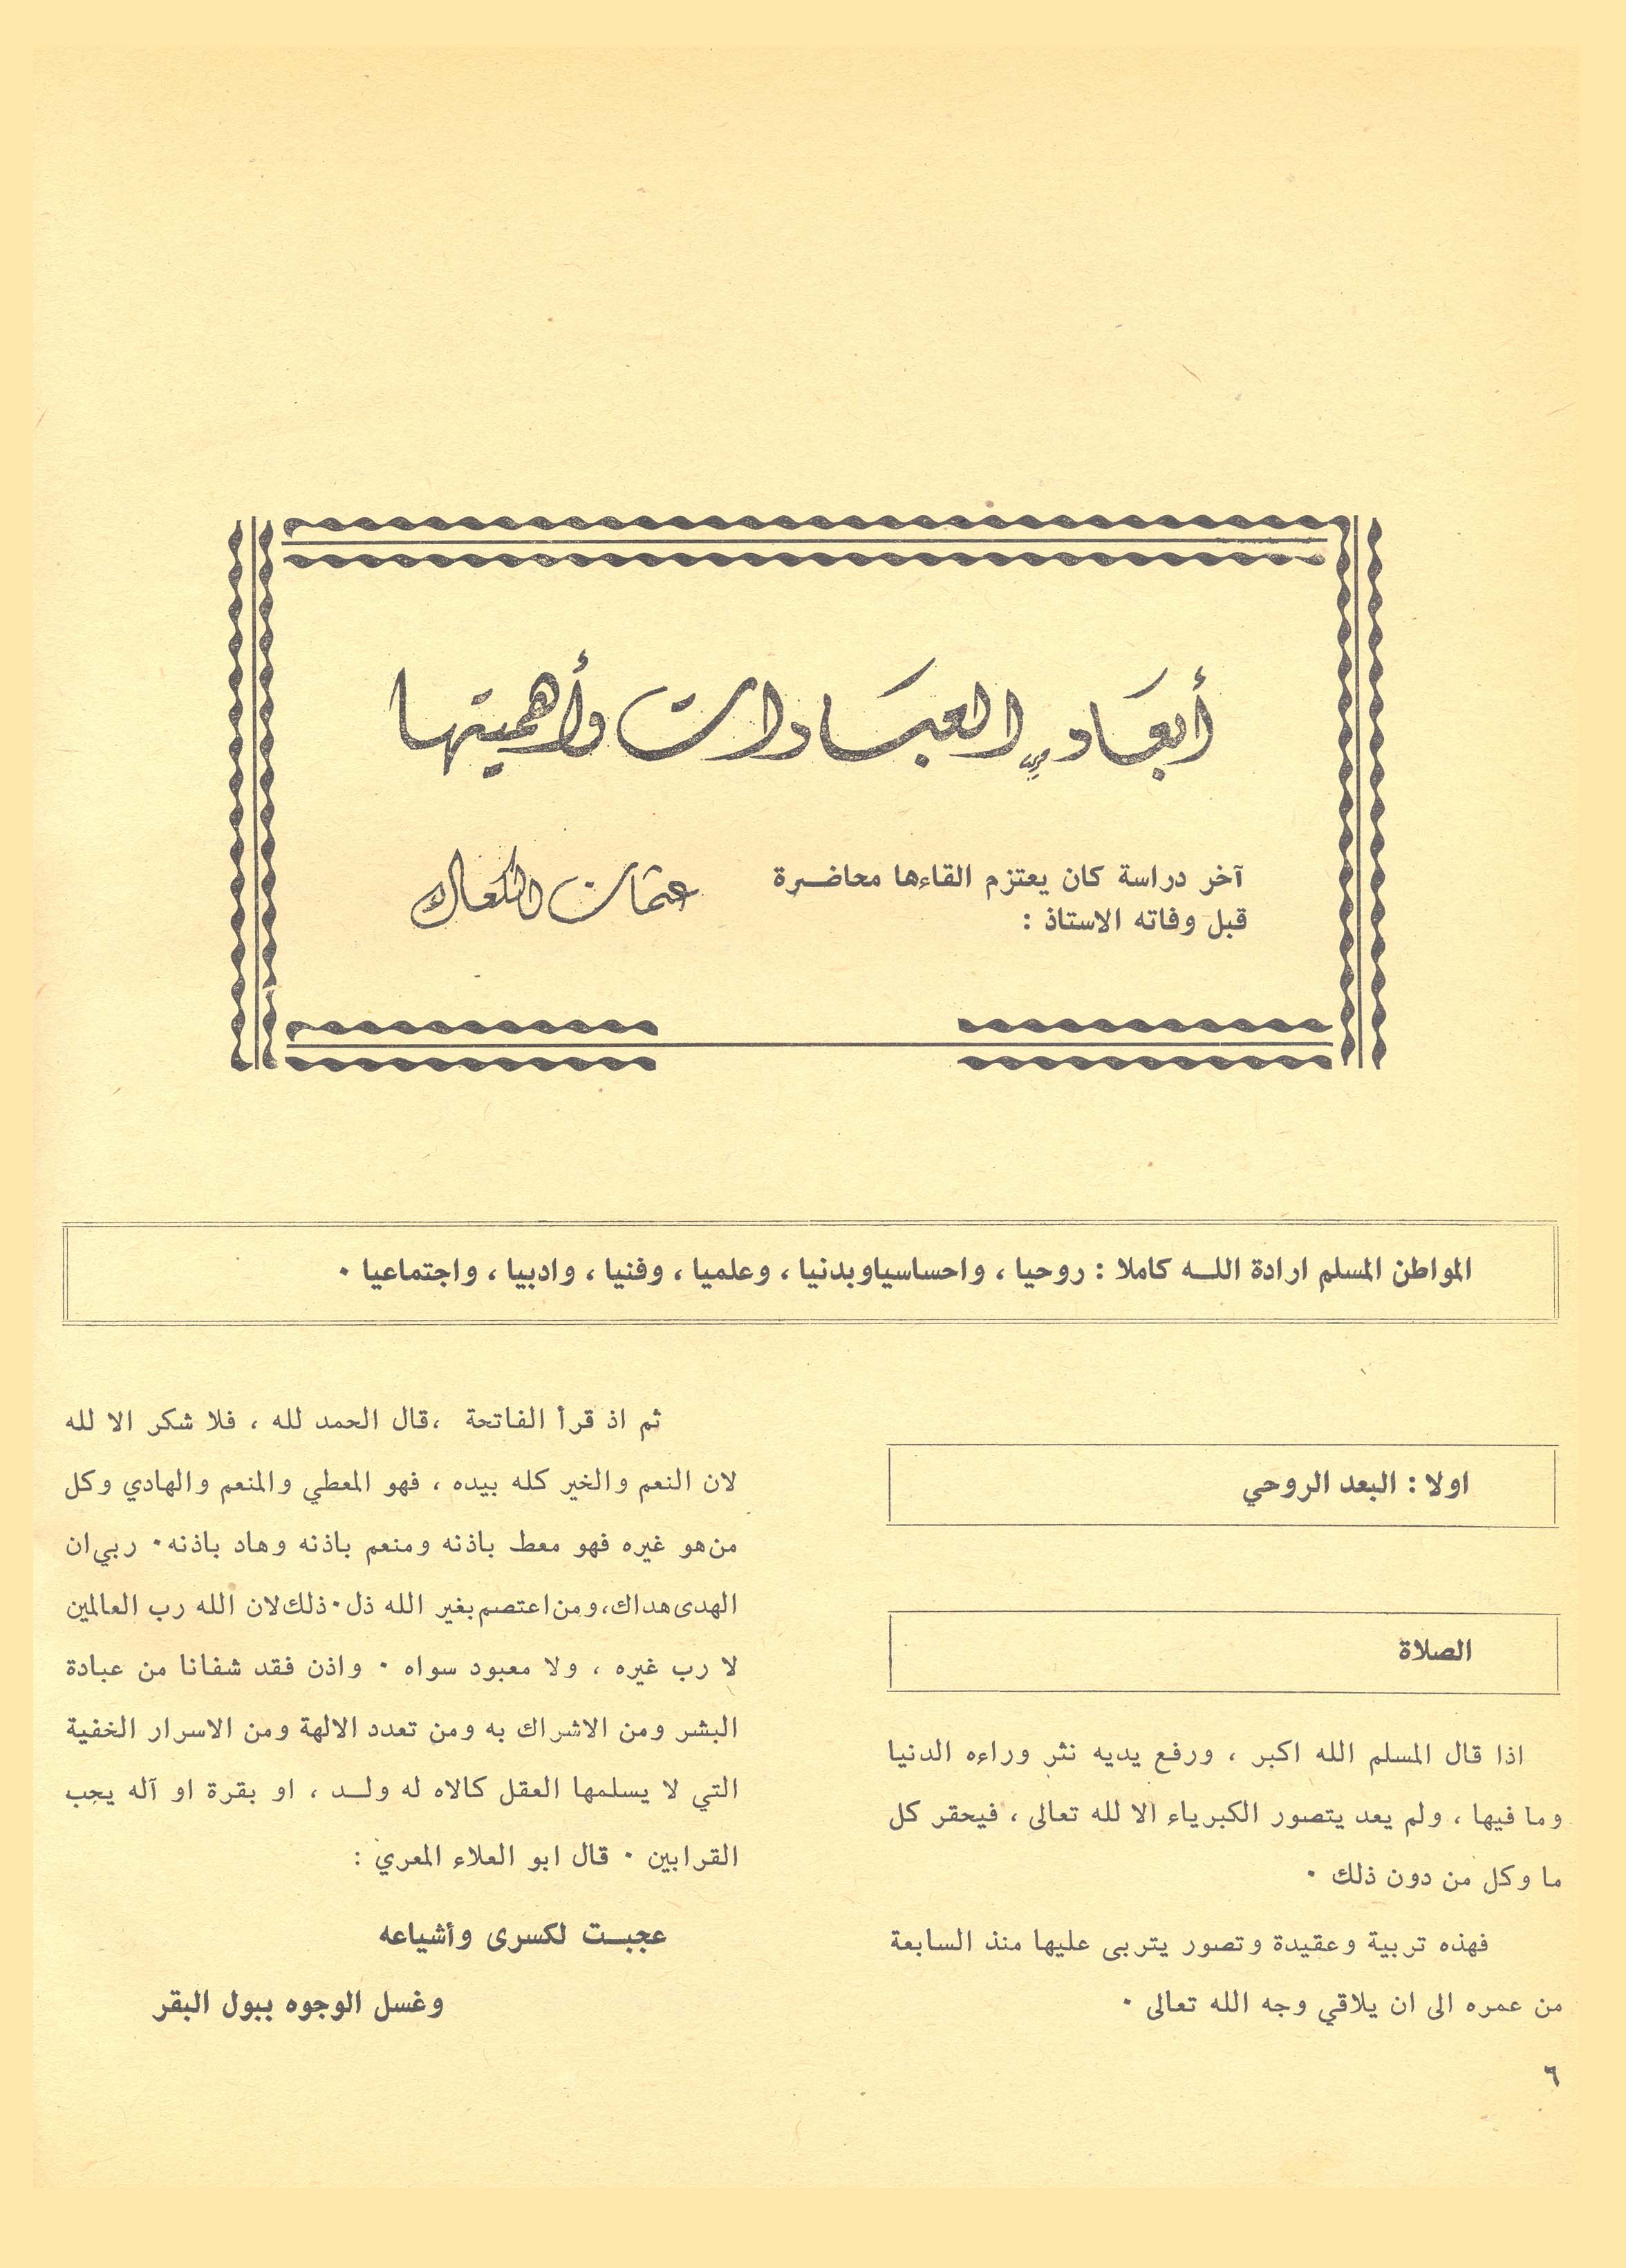 أبعاد العبادات وأهميتها
آخر دراسة كان يعتزم القاءها محاضرة
قبل وفاته الاستاذ :
عثمان الكعاك
المواطن المسلم ارادة اللـه كاملا : روحيا ، واحساسياوبدنيا ، وعلميا ، وفنيا ، وادبيا ، واجتماعيا ٠
اولا : البعد الروحي
الصلاة
اذا قال المسلم الله اكبر ، ورفع يديه نثر وراءه الدنيا
وما فيها ، ولم يعد يتصور الكبرياء الا لله تعالى ، فيحقر كل
ما وكل من دون ذلك ٠
فهذه تربية وعقيدة وتصور يتربى عليها منذ السابعة
من عمره الى ان يلاقي وجه الله تعالى ٠
ثم اذ قرأ الفاتحة ،قال الحمد لله ، فلا شكر الا لله
لان النعم والخير كله بيده ، فهو المعطي والمنعم والهادي وكل
من هو غيره فهو معط باذنه ومنعم باذنه وهاد باذنه٠ ربي ان
الهدى هداك، ومن اعتصم بغير الله ذل٠ ذلك لان الله رب العالمين
لا رب غيره ، ولا معبود سواه ٠ واذن فقد شفانا من عبادة
البشر ومن الاشراك به ومن تعدد الالهة ومن الاسرار الخفية
التي لا يسلمها العقل كالاه له ولـد ، او بقرة او آله يحب
القرابين ٠ قال ابو العلاء المعري :
عجبـت لكسرى وأشياعه
وغسل الوجوه ببول البقر
٦